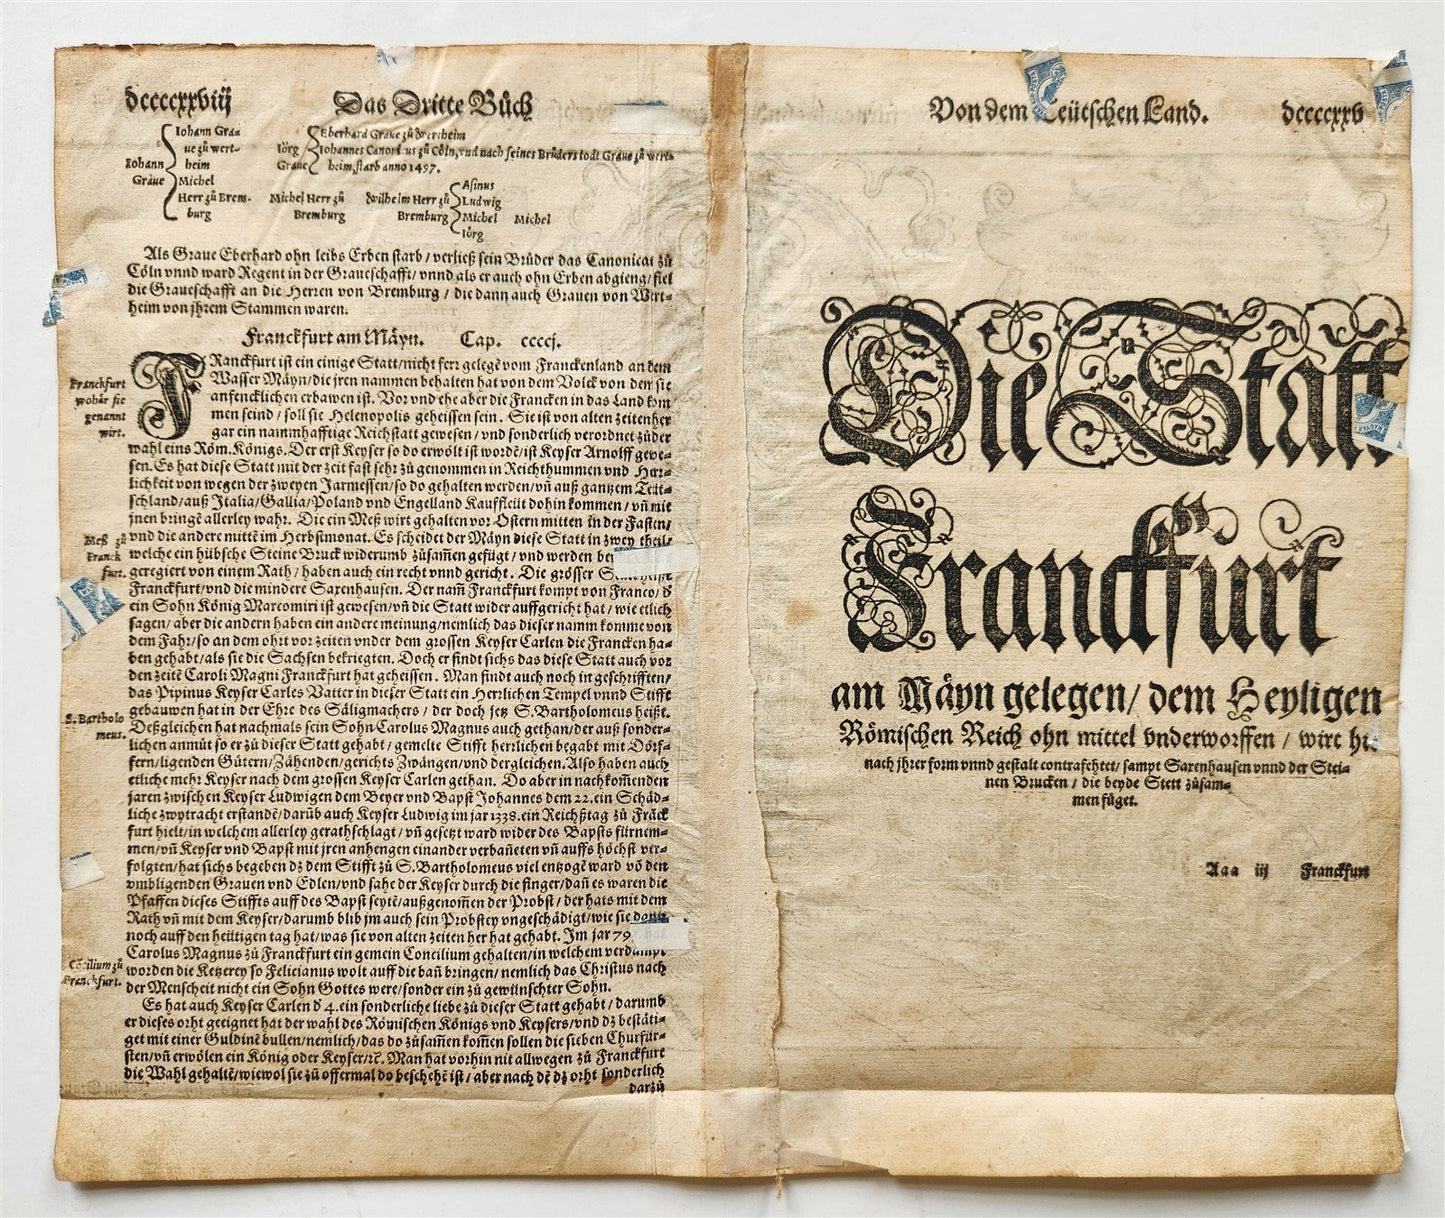 dccccxxviij
Das Dritte Bůch
Iohann Gra-
ue zů wert-
heim
Iohann
Graue
Michel
Herr zů Brem-
burg
Eberhard Graue zů Wertheim
Iörg
Graue
Iohannes Canonicus zů Cöln, vnd nach seines Brůders todt Graue zů wert-
heim, starb anno 1497.
Michel Herr zů
Bremburg
Wilhelm Herr zů
Bremburg
Asinus
Ludwig
Michel Michel
Iörg
Als Graue Eberhard ohn leibs Erben starb / verließ sein Brůder das Canonicat zů
Cöln vnnd ward Regent in der Graueschafft / vnnd als er auch ohn Erben abgieng / fiel
die Graueschafft an die Herren von Bremburg / die dann auch Grauen von Wert-
heim von jhrem Stammen waren.
Franckfurt am Mäyn. Cap. ccccj.
FRanckfurt ist ein einige Statt / nicht ferr gelegē vom Franckenland an dem
Wasser Mäyn / die jren nammen behalten hat von dem Volck von den sie
anfencklichen erbawen ist. Vor vnd ehe aber die Francken in das Land kom
men seind / soll sie Helenopolis geheissen sein. Sie ist von alten zeiten her
gar ein nammhafftige Reichstatt gewesen / vnd sonderlich verordnet zů der
wahl eins Röm. Königs. Der erst Keyser so do erwölt ist wordē / ist Keyser Arnolff gewe-
sen. Es hat diese Statt mit der zeit fast sehr zů genommen in Reichthummen vnd Herr-
lichkeit von wegen der zweyen Jarmessen / so do gehalten werden / vñ auß gantzem Teüt-
schland / auß Italia / Gallia / Poland vnd Engelland Kauffleüt dohin kommen / vñ mit
jnen bringē allerley wahr. Die ein Meß wirt gehalten vor Ostern mitten in der Fasten /
vnd die andere mittē im Herbstmonat. Es scheidet der Mäyn diese Statt in zwey theil /
welche ein hübsche Steine Bruck widerumb zůsam̃en gefügt / vnd werden
geregiert von einem Rath / haben auch ein recht vnnd gericht. Die grösser
Franckfurt / vnd die mindere Saxenhausen. Der nam̃ Franckfurt kompt von Franco / d̄
ein Sohn König Marcomiri ist gewesen / vñ die Statt wider auffgericht hat / wie etlich
sagen / aber die andern haben ein andere meinung / nemlich das dieser namm komme von
dem Fahr / so an dem ohrt vor zeiten vnder dem grossen Keyser Carlen die Francken ha-
ben gehabt / als sie die Sachsen bekriegten. Doch erfindt sichs das diese Statt auch vor
den zeitē Caroli Magni Franckfurt hat geheissen. Man findt auch noch in geschrifften /
das Pipinus Keyser Carles Vatter in dieser Statt ein Herrlichen Tempel vnnd Stifft
gebauwen hat in der Ehre des Säligmachers / der doch jetz S. Bartholomeus heißt.
Deßgleichen hat nachmals sein Sohn Carolus Magnus auch gethan / der auß sonder-
lichen anmůt so er zů dieser Statt gehabt / gemelte Stifft herrlichen begabt mit Dörf-
fern / ligenden Gütern / Zähenden / gerichts Zwängen / vnd dergleichen. Also haben auch
etliche mehr Keyser nach dem grossen Keyser Carlen gethan. Do aber in nachkom̃enden
jaren zwischen Keyser Ludwigen dem Beyer vnd Bapst Johannes dem 22. ein Schäd-
liche zwytracht erstandē / darüb auch Keyser Ludwig im jar 1338. ein Reichßtag zů Frāck
furt hielt / in welchem allerley gerathschlagt / vñ gesetzt ward wider des Bapsts fürnem-
men / vñ Keyser vnd Bapst mit jren anhengen einander verbañeten vñ auffs höchst ver-
folgten / hat sichs begeben dz dem Stifft zů S. Bartholomeus viel entzogē ward vō den
vmbligenden Grauen vnd Edlen / vnd sahe der Keyser durch die finger / dañ es waren die
Pfaffen dieses Stiffts auff des Bapst seytē / außgenom̃en der Probst / der hats mit dem
Rath vñ mit dem Keyser / darumb blib jm auch sein Probstey vngeschädigt / wie sie
noch auff den heütigen tag hat / was sie von alten zeiten her hat gehabt. Im jar 79
Carolus Magnus zů Franckfurt ein gemein Concilium gehalten / in welchem verdampt
worden die Ketzerey so Felicianus wolt auff die bañ bringen / nemlich das Christus nach
der Menscheit nicht ein Sohn Gottes were / sonder ein zů gewünschter Sohn.
Es hat auch Keyser Carlen d̄ 4. ein sonderliche liebe zů dieser Statt gehabt / darumb
er dieses orht geeignet hat der wahl des Römischen Königs vnd Keysers / vnd dz bestäti-
get mit einer Guldinē bullen / nemlich / das do zůsam̃en kom̃en sollen die sieben Churfür-
sten / vñ erwölen ein König oder Keyser / rc̄. Man hat vorhin nit allwegen zů Franckfurt
die Wahl gehaltē / wiewol sie zů offermal do beschehē ist / aber nach dē dz orht sonderlich
darzů
Franckfurt
wohâr sie
genannt
wirt.
Meß zů
Franck
furt.
S. Bartholo
meus.
Cōcilium zů
Franckfurt.
Von dem Teütschen Land.
dccccxxv
Die Statt
Franckfurt
am Mäyn gelegen / dem Heyligen
Römischen Reich ohn mittel vnderworffen / wirt hi
nach jhrer form vnnd gestalt contrafehtet / sampt Saxenhausen vnnd der Stei-
nen Brucken / die beyde Stett zůsam-
men füget.
Aaa iij Franckfurt